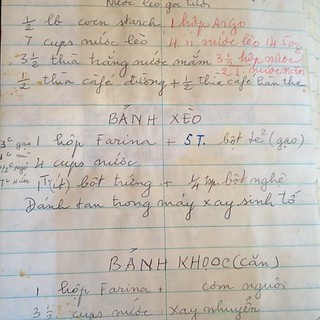 nước lèo gà tươi
½ lb corn starch 1 hộp Argo
7 cups nước lèo 4 nước lèo 14.5oz
3½ thìa tráng nước mắm 3½ hộp nước
½ thìa cafe đường + ½ thìa cafe hàn the
nước mắm
BÁNH XÈO
3c gạo 1 hộp Farina + 5T. bột tẻ (gạo)
4 cups nước
1T (ít) bột trứng + ¼ bột nghệ
7c nước
Đánh tan trong máy xay sinh tố
BÁNH KHỌOC (CĂN)
1 hộp Farina + cơm nguội
3½ cups nước xay nhuyễn